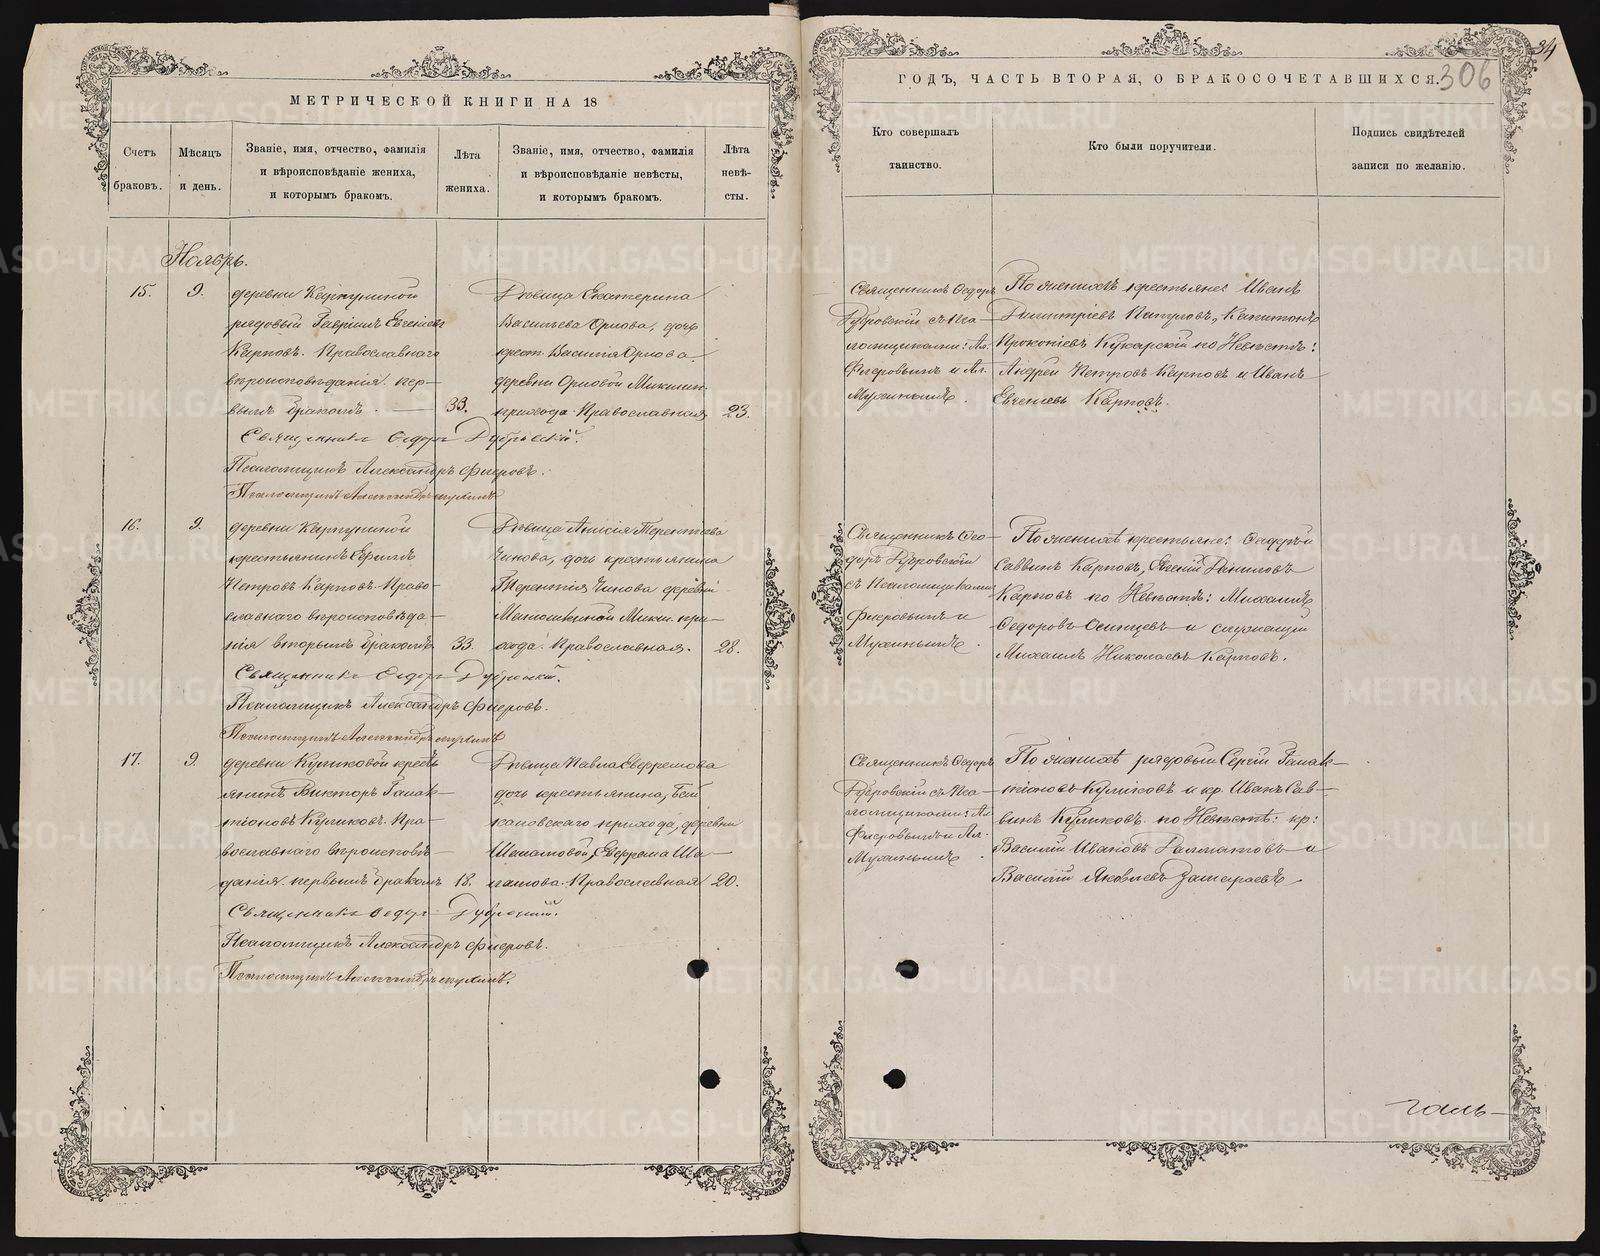 МЕТРИЧЕСКОЙ КНИГИ НА 18
Счетъ браковъ.
Мѣсяцъ и день.
Званіе, имя, отчество, фамилія и вѣроисповѣданіе жениха, и которымъ бракомъ.
Лѣта жениха.
Званіе, имя, отчество, фамилія и вѣроисповѣданіе невѣсты, и которымъ бракомъ.
Лѣта невѣ-сты.
Ноябрь.
15.
9.
деревни
рядовый Гавріилъ Евгеніевъ
Карповъ. Православнаго
вѣроисповѣданія пер-
вымъ бракомъ.
33.
Дѣвица Екатерина
Васильева Орлова, дочь
крест. Василія Орлова
деревни Орловой
прихода Православная
23.
Священникъ Ѳедоръ
Псаломщикъ Александръ Фигеровъ.
Псаломщикъ Александръ Мухинъ
16.
9.
деревни
крестьянинъ Ефимъ
Петровъ Карповъ. Право-
славнаго вѣроисповѣда-
нія вторымъ бракомъ
33.
Дѣвица Анисія Терентьева
дочь крестьянина
Терентія деревни
при-
хода. Православная.
28.
Священникъ Ѳедоръ
Псаломщикъ Александръ Фигеровъ.
Псаломщикъ Александръ Мухинъ
17.
9.
деревни Куликовой кресть
янинъ Викторъ Галак-
тіоновъ Куликовъ. Пра-
вославнаго вѣроисповѣ-
данія первымъ бракомъ
18.
Дѣвица Павла
дочь крестьянина,
прихода, деревни
Православная
20.
Священникъ Ѳедоръ
Псаломщикъ Александръ Фигеровъ.
Псаломщикъ Александръ Мухинъ.
34
306
ГОДЪ, ЧАСТЬ ВТОРАЯ, О БРАКОСОЧЕТАВШИХСЯ.
Кто совершалъ таинство.
Кто были поручители.
Подпись свидѣтелей записи по желанію.
Священникъ Ѳедоръ
Дубровскій съ Пса-
ломщиками: Ал.
Фигеровымъ и Ал.
Мухинымъ.
По женихѣ крестьяне: Иванъ
Димитріевъ Капитонъ
Прокопіевъ Кукарскій по Невѣстѣ:
Андрей Петровъ Карповъ и Иванъ
Евгеніевъ Карповъ.
Священникъ Ѳео-
доръ Дубровскій
съ Псаломщиками
Фигеровымъ и
Мухинымъ.
По женихѣ крестьяне: Ѳедоръ
Саввинъ Карповъ, Евгеній Даниловъ
Карповъ по Невѣстѣ: Михаилъ
Ѳедоровъ Осинцевъ и служащій
Михаилъ Николаевъ Карповъ.
Священникъ Ѳедоръ
Дубровскій съ Пса-
ломщиками: Ал.
Фигеровымъ и Ал.
Мухинымъ.
По женихѣ рядовый Сергій Галак-
тіоновъ Куликовъ и кр. Иванъ Сав-
винъ Куликовъ по Невѣстѣ: кр:
Василій Ивановъ Далматовъ и
Василій Яковлевъ
METRIKI.GASO-URAL.RU